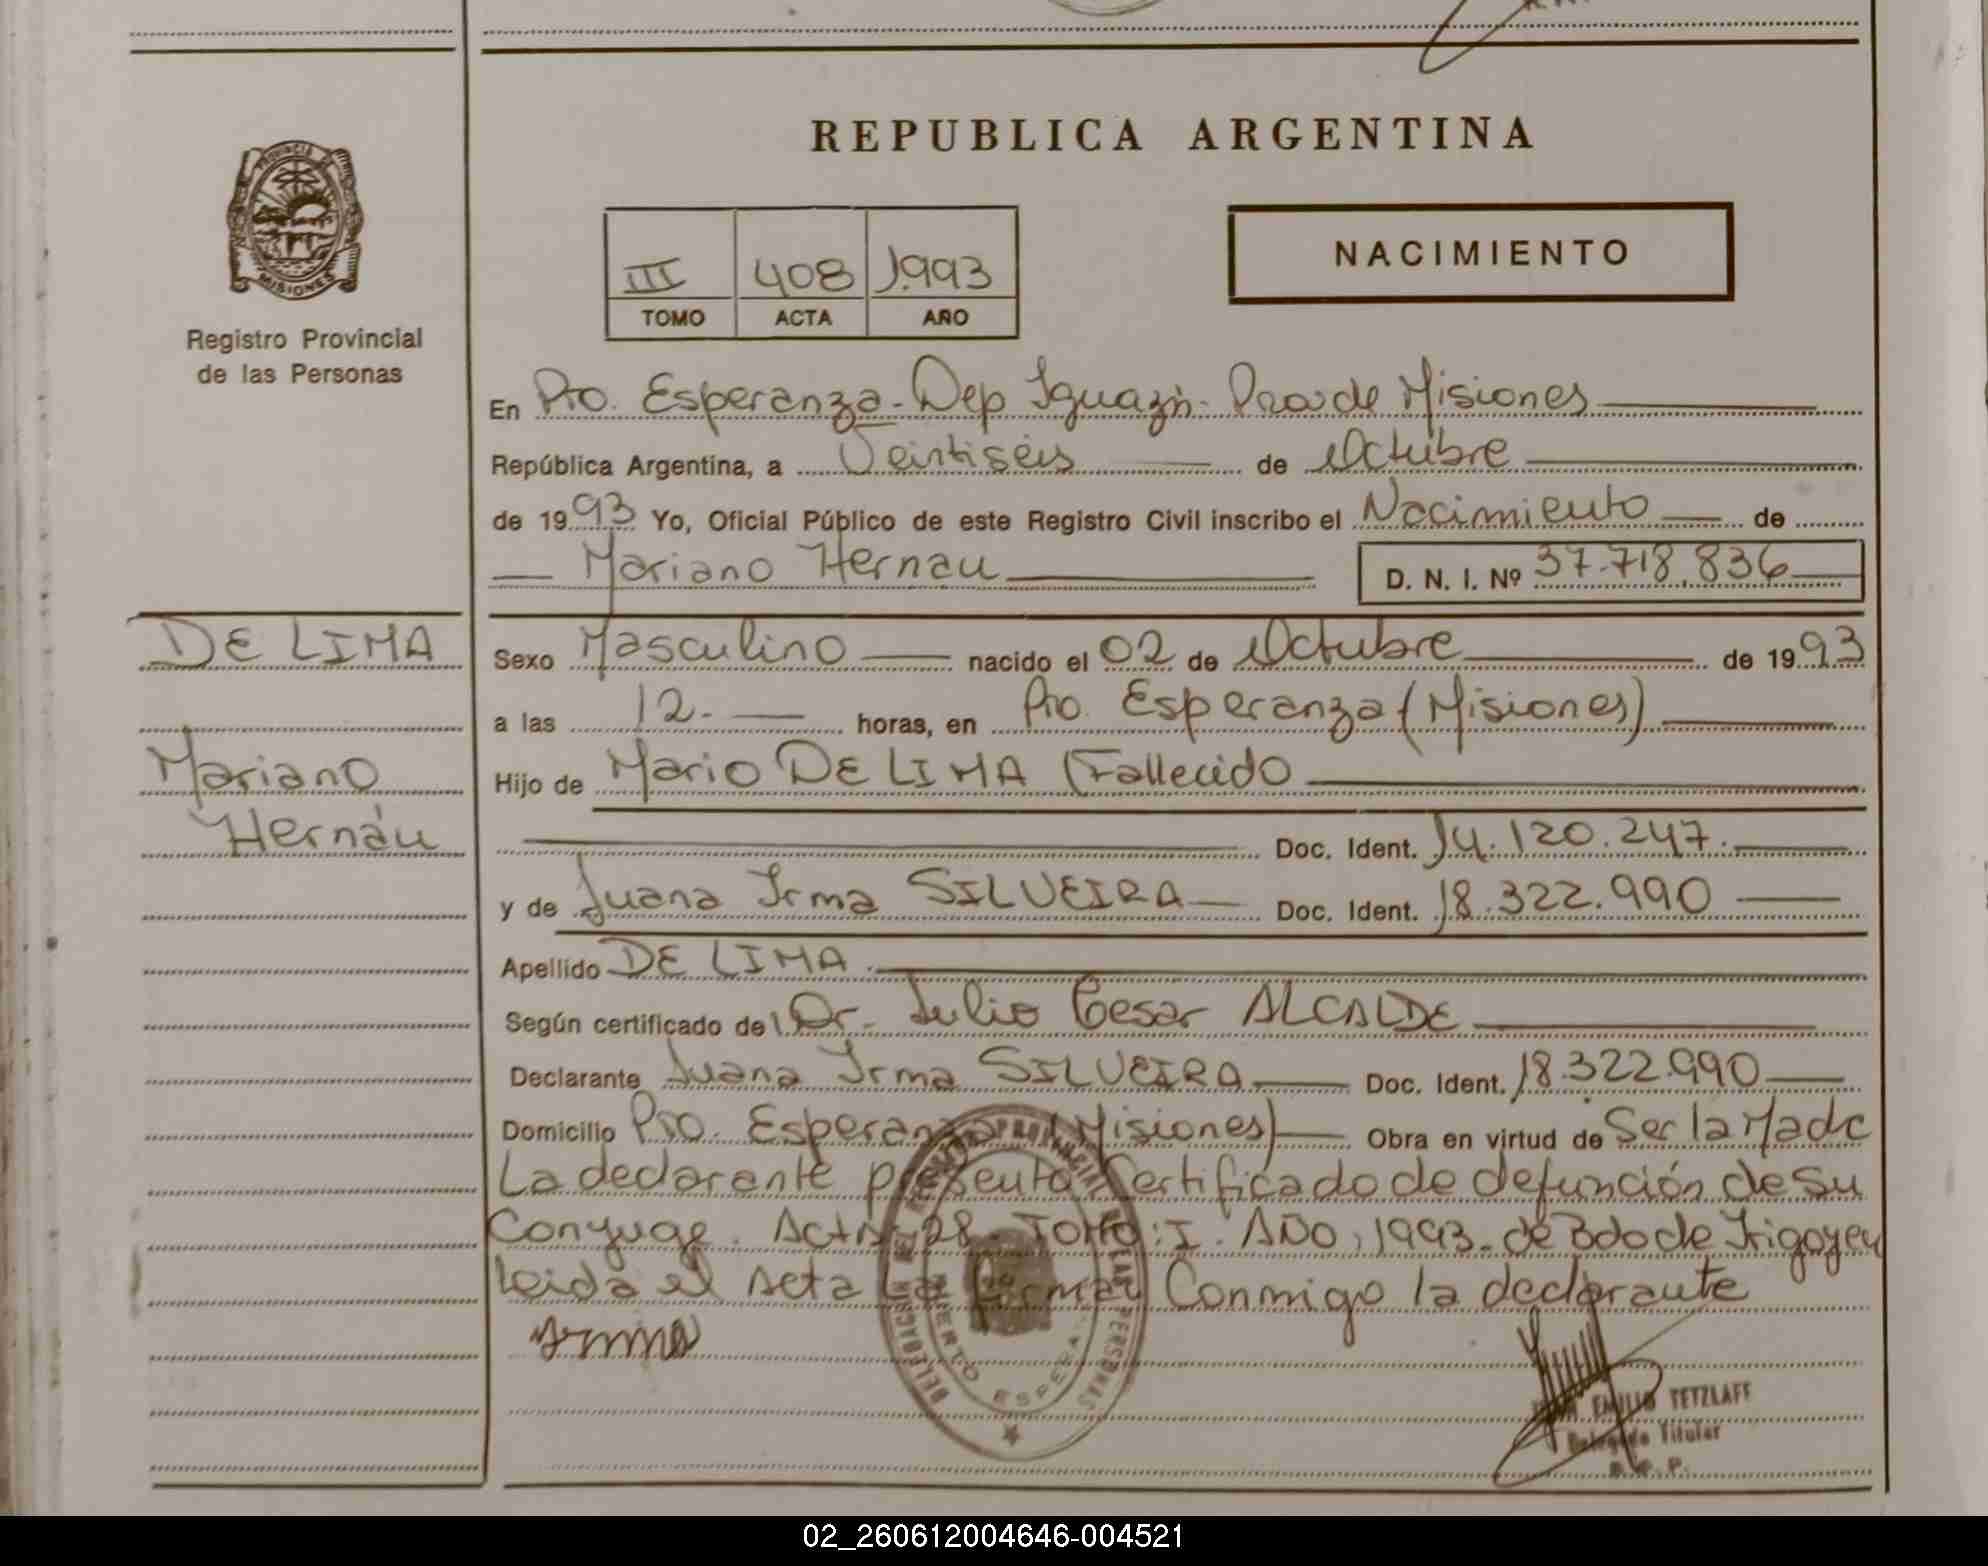 REPUBLICA ARGENTINA
PROVINCIA DE
MISIONES
Registro Provincial
de las Personas
III 408 1.993
TOMO ACTA AÑO
NACIMIENTO
En Pto. Esperanza - Dep Iguazú - Prov. de Misiones
República Argentina, a Veintiséis de Octubre
de 1993 Yo, Oficial Público de este Registro Civil inscribo el Nacimiento de
Mariano Hernan D. N. I. Nº 37.718.836
DE LIMA
Mariano
Hernán
Sexo Masculino nacido el 02 de Octubre de 1993
a las 12.- horas, en Pto. Esperanza (Misiones)
Hijo de Mario DE LIMA (Fallecido
Doc. Ident. 14.120.247.
y de Juana Irma SILVEIRA Doc. Ident. 18.322.990
Apellido DE LIMA.
Según certificado del Dr. Julio Cesar ALCALDE
Declarante Juana Irma SILVEIRA Doc. Ident. 18.322.990
Domicilio Pto. Esperanza (Misiones) Obra en virtud de Ser la Madre
La declarante presenta Certificado de defunción de Su
Conyuge. Acta: 28. TOMO: I. AÑO, 1993. de Bdo de Irigoyen
Leida el Acta La firman Conmigo la declarante
Irma
DELEGACION DEL REGISTRO PROVINCIAL DE LAS PERSONAS
PUERTO ESPERA
EMILIO TETZLAFF
Delegado Titular
R. P. P.
02_260612004646-004521